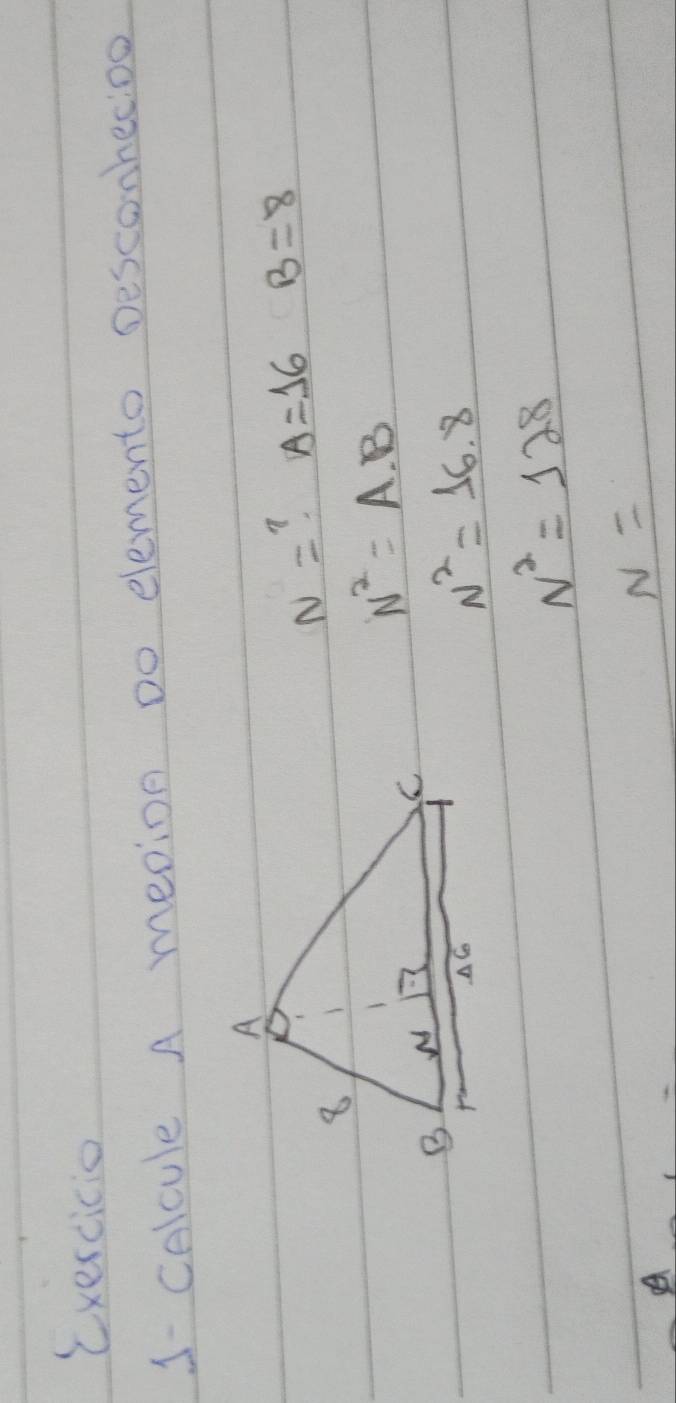 Exercicio
1- CAlcule A meDiDA DO elemento DesconheciDo
A
8
B
N
C
16
N=? A=16 B=8
N²= A.B
N²=16.8
N²=128
N=